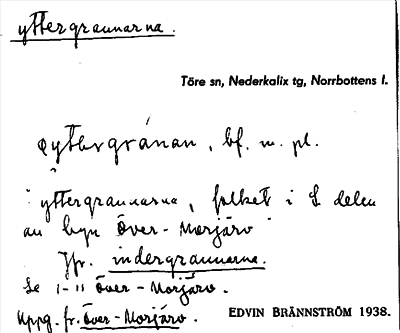 yttergrannarna.
Töre sn, Nederkalix tg, Norrbottens l.
yttergránan, bf. m. pl.
yttergrannarna, folket i S delen
av byn Över-Morjärv
Jfr. indergrannarna.
Se i Över-Morjärv.
Uppg. fr. Över-Morjärv.
EDVIN BRÄNNSTRÖM 1938.